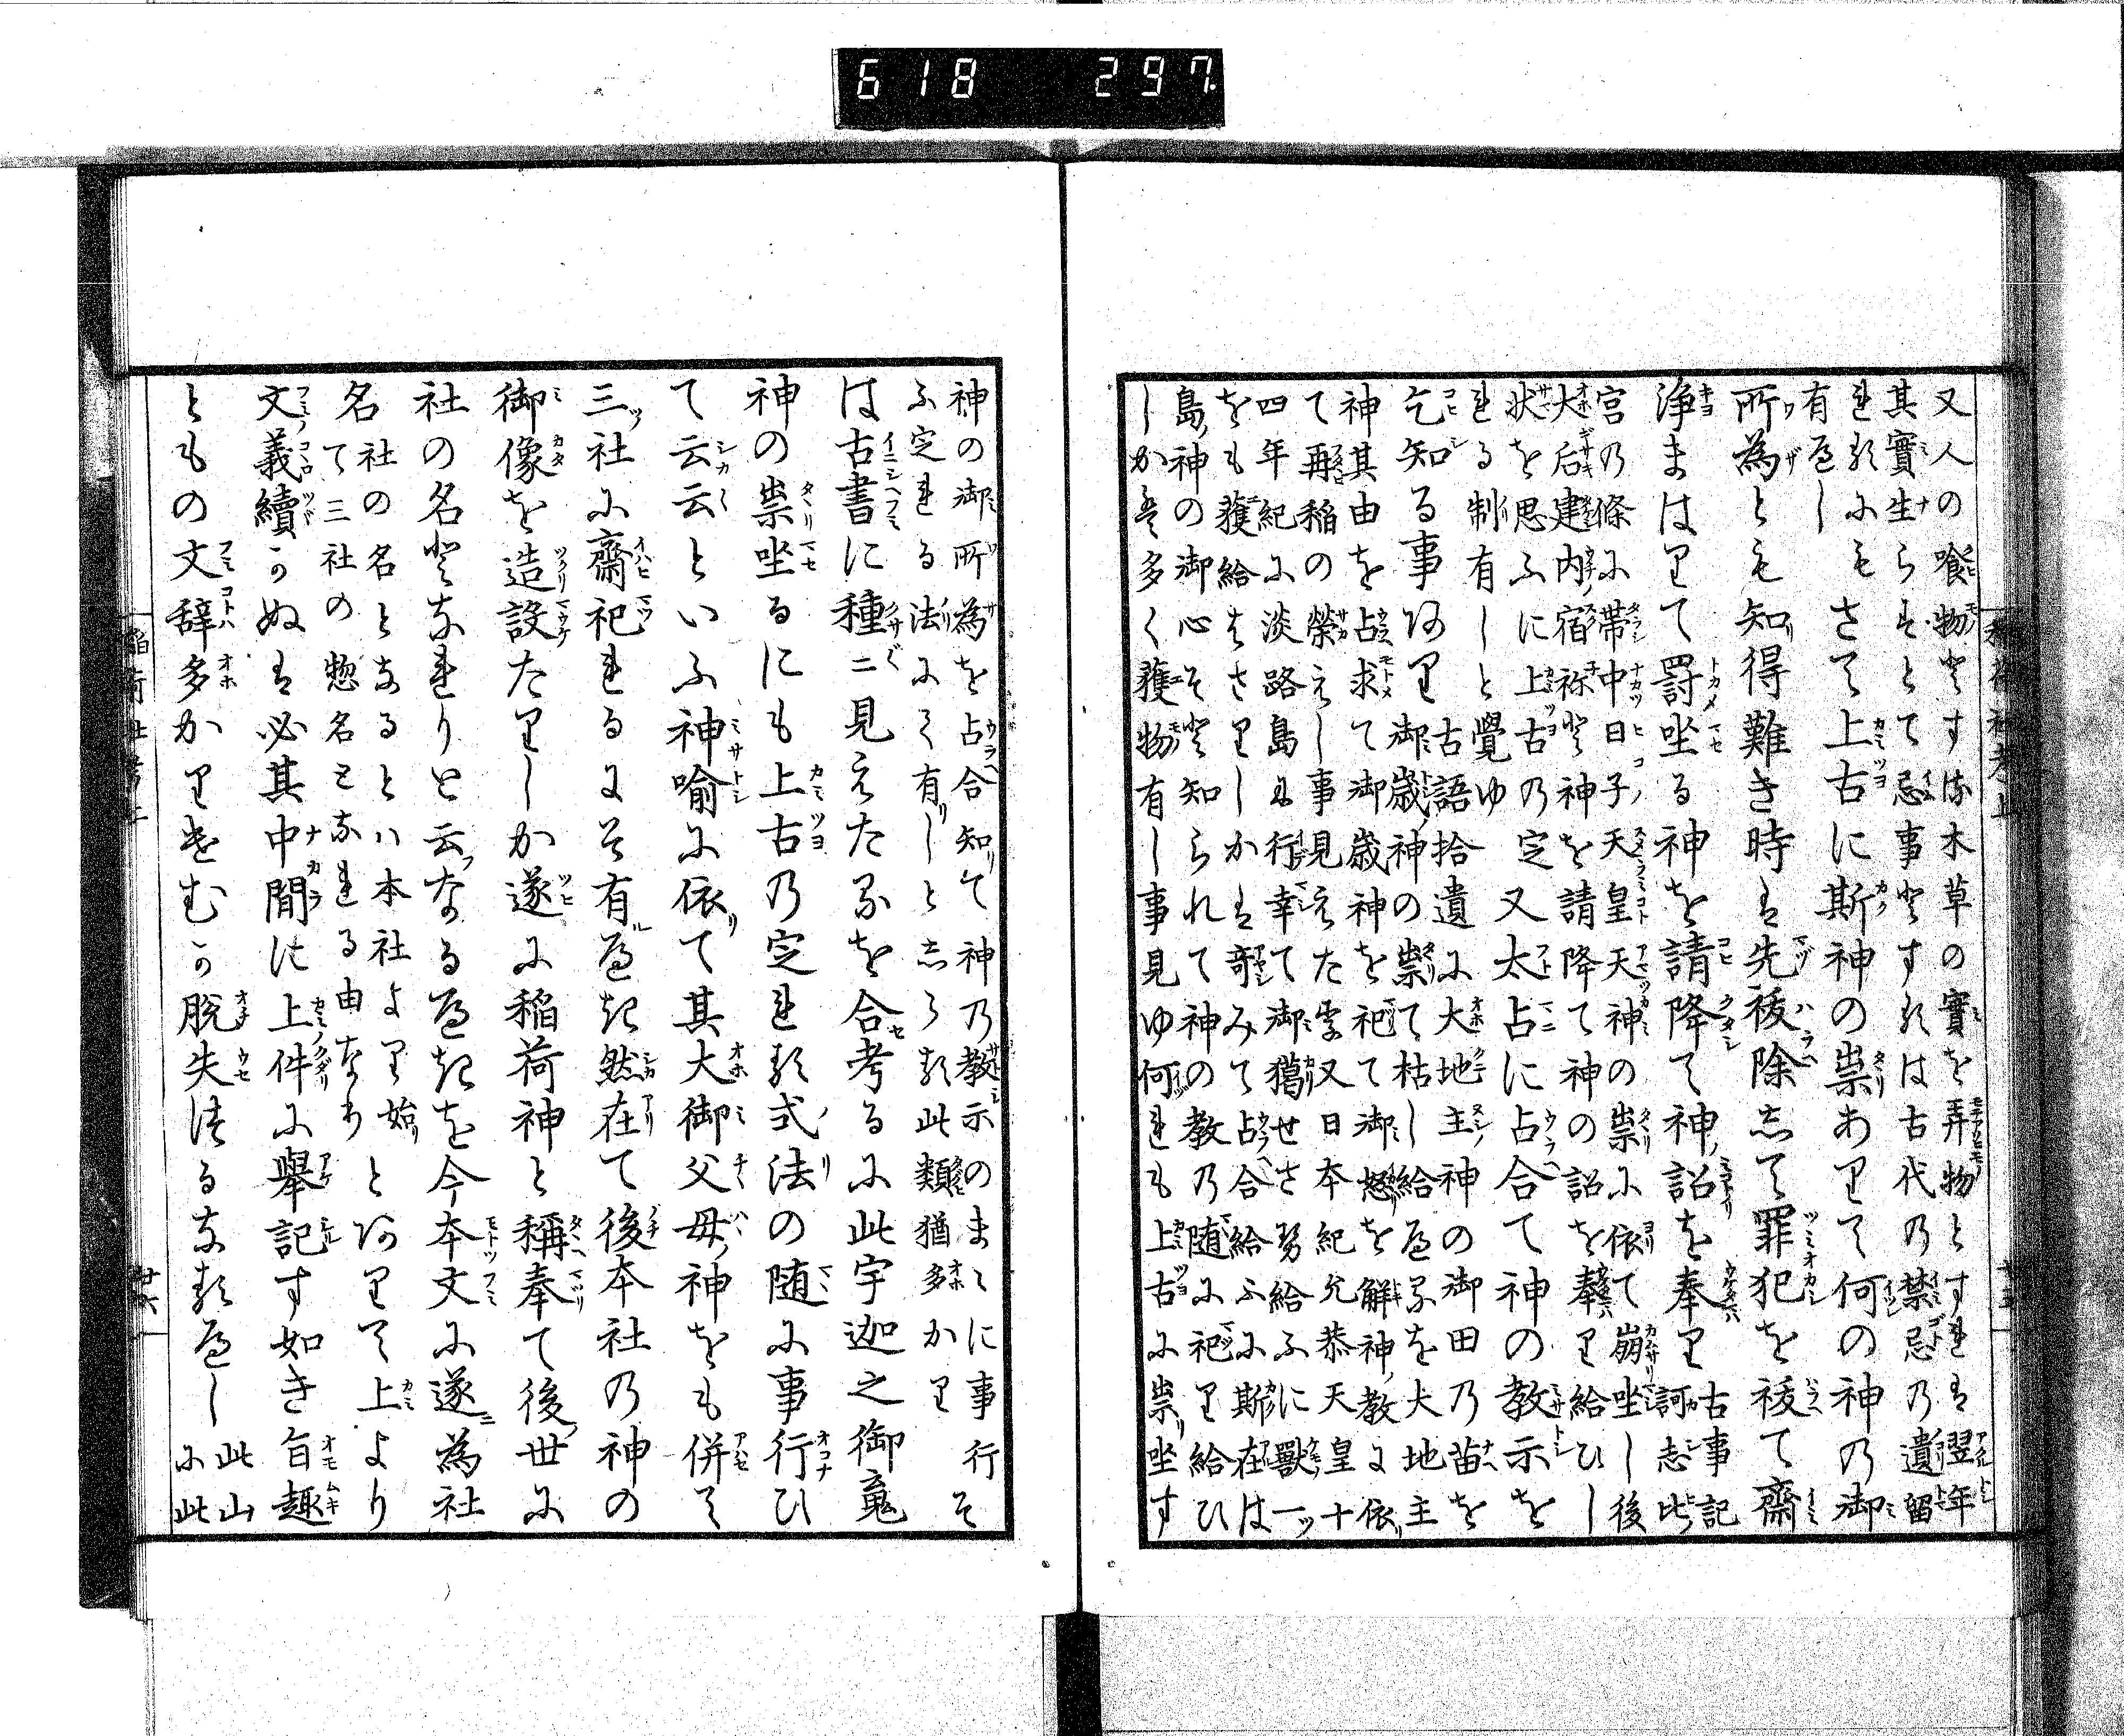 618 297
稲荷社考上
又人の喰物とすは木草の實を弄物とすれは翌年
其實生らすとて忌事とするは古代乃禁忌の遺留
れるにもさて上古に斯神の祟ありて何の神乃御
有へし
所為とも知得難き時は先祓除して罪犯を祓て齋
浄まはりて罸坐る神を請降て神詔を奉り古事記訶志比
宮乃條に帯中日子天皇天神の祟に依て崩坐し後
大后建内宿祢と神を請降て神の詔を奉り給ひし
状を思ふに上古乃定又太占に占合て神の教示を
れる制有しと覺ゆ
乞知る事あり古語拾遺に大地主神の御田乃苗を
御歳神の祟て枯し給へるを大地主
神其由を占求て御歳神を祀て御怒を解神教に依
て再稲の榮えし事見えたり又日本紀允恭天皇十
四年紀に淡路島に行幸て御獦せさせ給ふに獸一
をも獲給はさりしかは奇みて占合給ふに斯在は
島神の御心そと知られて神の教乃随に祀り給ひ
しかは多く獲物有し事見ゆ何れも上古に祟坐す
神の御所為を占合知て神乃教示のまゝに事行そ
ふ定れる法にそ有しとしらる此類猶多かり
は古書に種々見えたるを合考るに此宇迦之御䰟
神の祟坐るにも上古乃定れる式法の随に事行ひ
て云云といふ神喻に依て其大御父母神をも併て
三社に齋祀れるにそ有へき然在て後本社乃神の
御像を造設たりしか遂に稲荷神と稱奉て後世に
社の名となれりと云なるへきを今本文に遂為社
名社の名となるとハ本社より始とありて上より
て三社の惣名となれる由なり
文義續かぬは必其中間に上件に舉記す如き旨趣
ともの文辞多かりけむか脱失けるなるへし此山に此
稲荷社考上 廿六